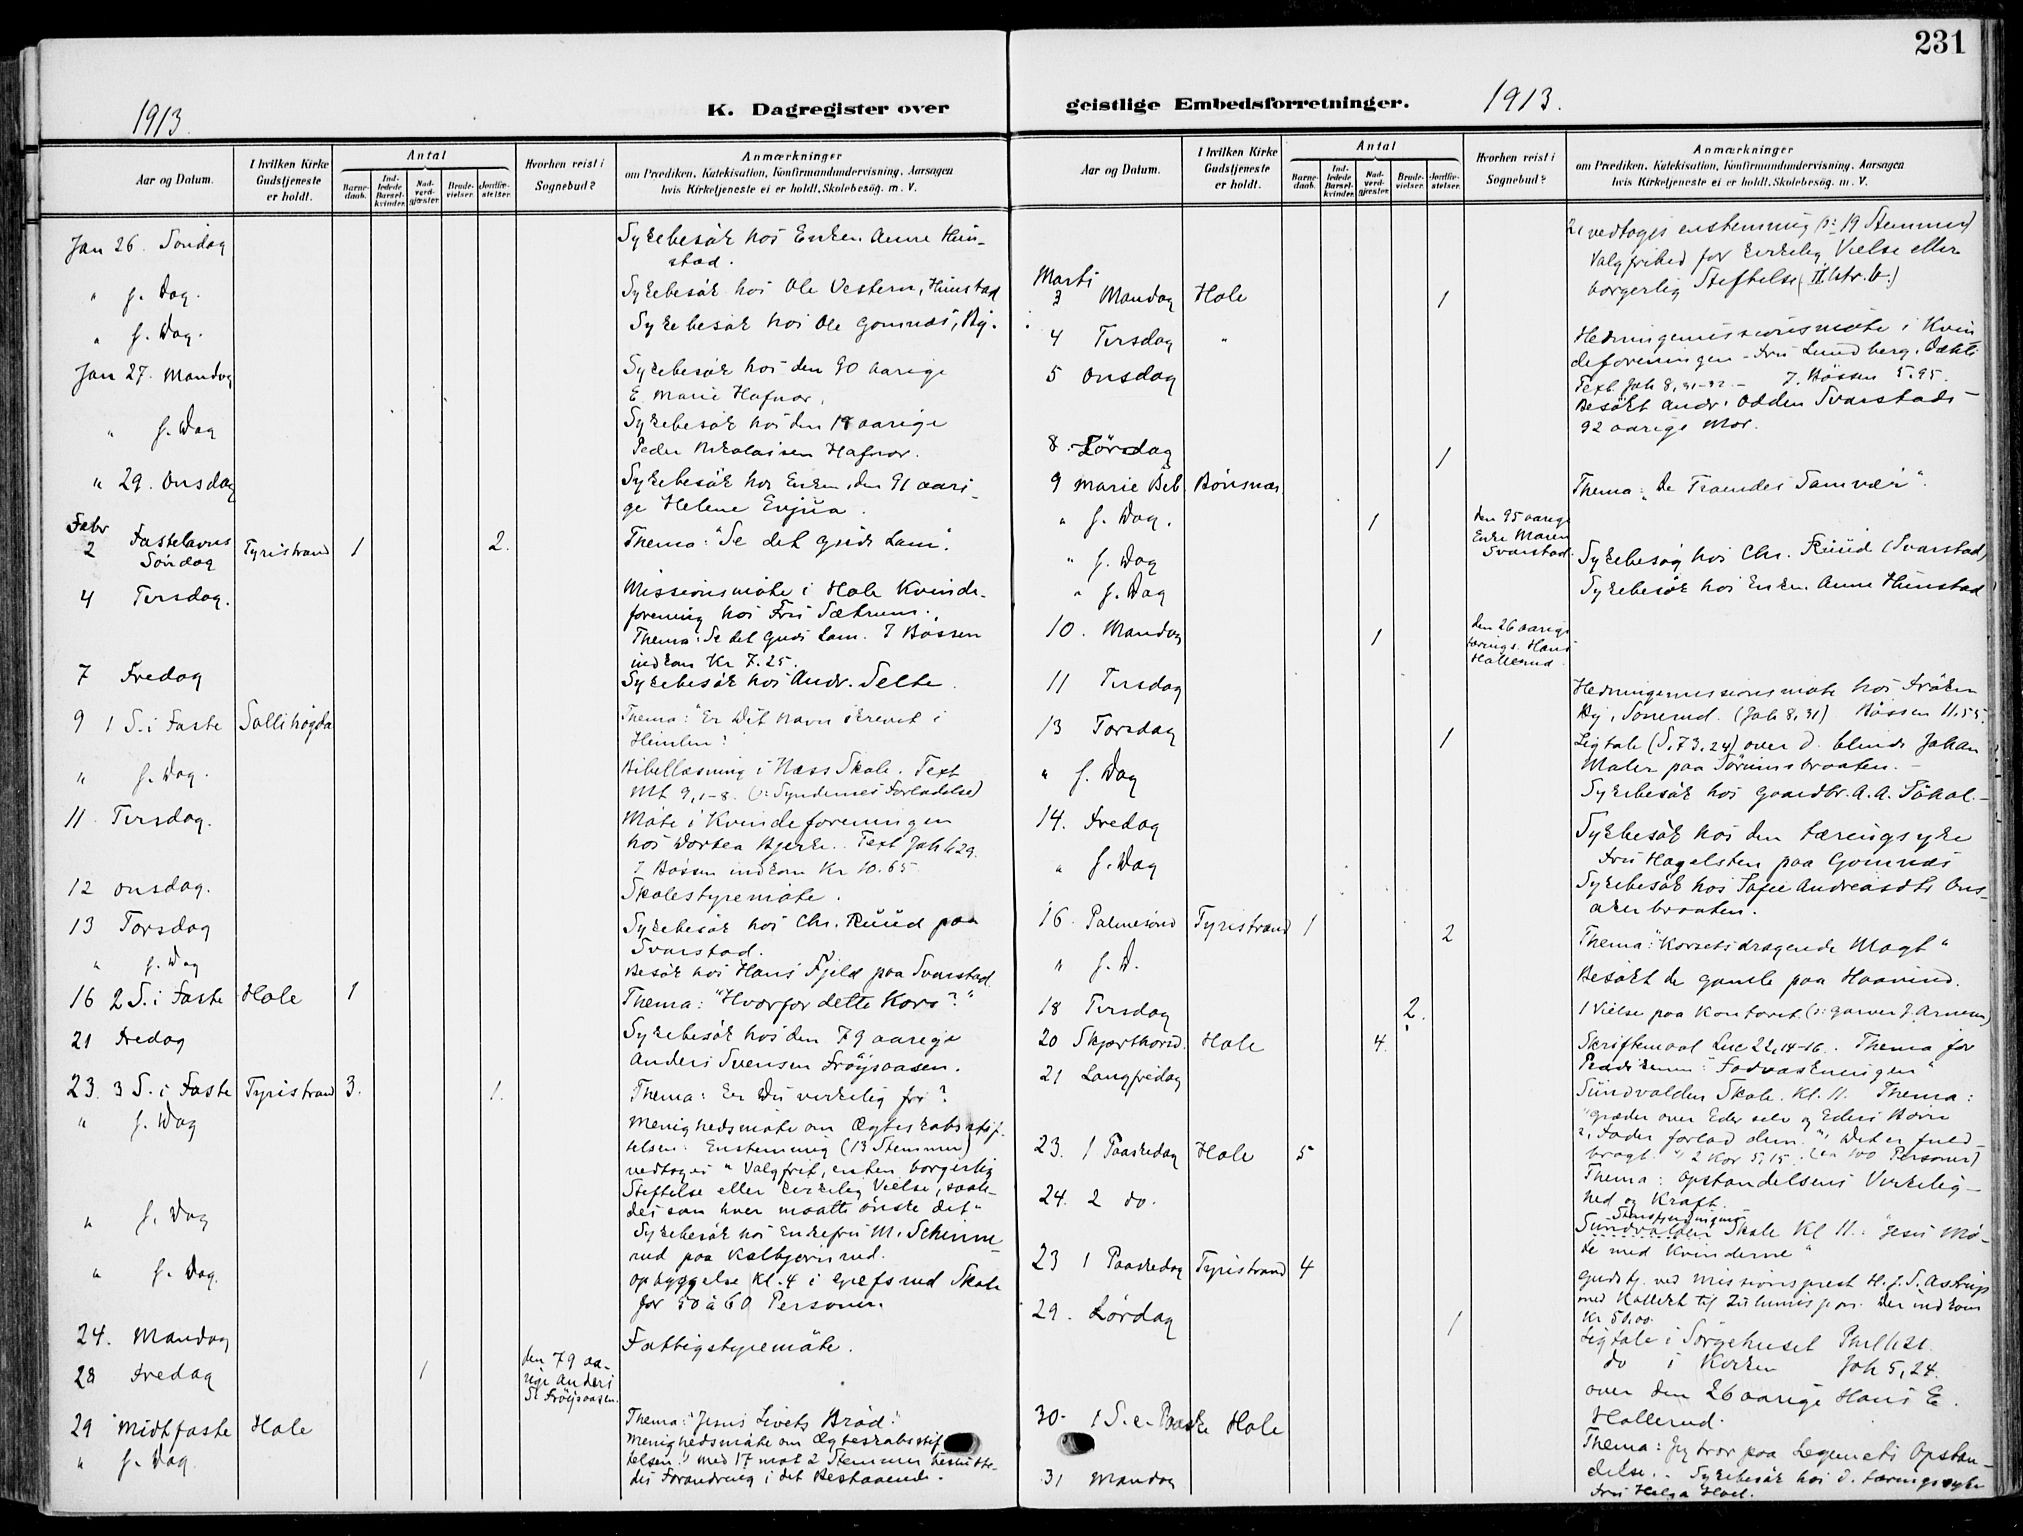 231
1913.
K. Dagregister over
geistlige Embedsforretninger.
1913.
Aar og Datum.
I hvilken Kirke Gudstjeneste er holdt.
Antal
Barne-daab.
Ind-ledede Barsel-kvinder.
Nad-verd-gjæster.
Brude-vielser.
Jordfæ-stelser.
Hvorhen reist i Sognebud?
Anmærkninger
om Prædiken, Katekisation, Konfirmandundervisning, Aarsagen
hvis Kirketjeneste ei er holdt, Skolebesøg. m. V.
Jan 26. Søndag Sykebesøk hos Enken Anne Hun-
stad.
" s. Dag. Sykebesøk hos Ole Vestern, Hunstad
" s. Dag. Sykebesøk hos Ole Gomnæs, By.
Jan 27. Mandag Sykebesøk hos den 90 aarige
E. Marie Hafnor.
" s. Dag Sykebesøk hos den 18 aarige
Peder Nikolaisen Hafnor.
" 29. Onsdag Sykebesøk hos Enken, den 91 aari-
ge Helene Enjua.
Febr
2 Fastelavns Søndag Tyristrand 1 2. Thema: "Se det Guds Lam".
4 Tirsdag. Missionsmøte i Hole Kvinde-
forening hos Fru Sætrum.
Thema: Se det Guds Lam. I Bøssen
indkom Kr 7.25.
7 Fredag Sykebesøk hos Andr. Selte.
9 1 S. i Faste Sollihøgda Thema: "Er dit Navn skrevet i
Himlen?
" s. Dag. Bibellæsning i Næss Skole. Text
Mt 9,1-8. (o: Syndernes Forladelse)
11 Tirsdag. Møte i Kvindeforeningen
hos Dortea Bjerke. Text Joh 1.29.
I Bøssen indkom Kr 10.65
12 Onsdag. Skolestyremøte.
13 Torsdag Sykebesøk hos Chr. Ruud paa
Svarstad.
" s. Dag Besøk hos Hans Fjeld paa Svarstad
16 2 S. i Faste Hole 1 Thema: "Hvorfor dette Kors?"
21 Fredag Sykebesøk hos den 79 aarige
Anders Svensen Frøysaasen.
23. 3 S. i Faste Tyristrand 3. 1. Thema: Er Du virkelig fri?
" s. Dag Menighedsmøte om Ægteskabsstif-
telsen: Enstemmig (13 Stemmer)
vedtoges "Valgfrit, enten borgerlig
Stiftelse eller kirkelig Vielse, saale-
des som hver maatte ønske det"
" s. Dag Sykebesøk hos Enkefru M. Schinne-
rud paa Kolbjørnsrud.
" s. Dag. Opbyggelse Kl. 4 i Gjefsrud Skole
for 50 à 60 Personer.
24. Mandag Fattigstyremøte.
28 Fredag 1 den 79 aa-
rige Anders
S. Frøysaasen.
29 Midtfaste Hole Thema: "Jesus Livets Brød."
" s. Dag. Menighedsmøte om Ægteskabsstif-
telsen: med 17 mot 2 Stemmer beslutte-
des Forandring i det Bestaaende.
Aar og Datum.
I hvilken Kirke Gudstjeneste er holdt.
Antal
Barne-daab.
Ind-ledede Barsel-kvinder.
Nad-verd-gjæster.
Brude-vielser.
Jordfæ-stelser.
Hvorhen reist i Sognebud?
Anmærkninger
om Prædiken, Katekisation, Konfirmandundervisning, Aarsagen
hvis Kirketjeneste ei er holdt, Skolebesøg. m. V.
vedtoges enstemmig (o: 19 Stemmer)
Valgfrihed for kirkelig Vielse eller
borgerlig Stiftelse
Marts
3 Mandag Hole 1
4 Tirsdag " Hedningemissionsmøte i Kvin
deforeningen - Fru Lundberg,
Text. Joh 8,31-32. - I Bøssen 5.95.
5 Onsdag Besøkt Andr. Odden Svarstads
92 aarige Mor.
8. Lørsdag 1
9 Marie Beb. Bønsnæs Thema: "De Troendes Samvær".
" s. Dag. 1 Den 95 aarige
Enke Maren
Svarstad.
" s. Dag Sykebesøg hos Chr. Ruud (Svarstad)
" s. Dag Sykebesøk hos Enken Anne Hunstad
10. Mandag 1 den 26 aarige
tærings. Hans
Hallerud.
11 Tirsdag Hedningemissionsmøte hos Frøken
By, Sonerud. (Joh 8,31) Bøssen 11.55.
13 Torsdag 1 Ligtale (S. 73,24) over d. blinde Johan
Maler paa Sørumsbraaten.
" s. Dag Sykebesøk hos Gaardbr. A. A.
14. Fredag Sykebesøk hos den tæringsyke
Fru Hagelsten paa Gomnæs
" s. Dag Sykebesøk hos Sofie Andreasdt. Ons-
akerbraaten.
16. Palmesønd Tyristrand 1 2 Thema: "Korsets dragende Magt"
" s. D. Besøkt de gamle paa Haavind.
18 Tirsdag 2. 1 Vielse paa Kontoret (o: garver J. Arnesen)
20 Skjærthorsd. Hole 4. Skriftemaal Luc 22,14-16. Thema for
Prædikenen: "Fodvaskningen"
21 Langfredag Sundvolden Skole. Kl. 11. Thema:
"Græder over Eder selv og Eders Børn
2, Fader forlad dem." "Det er fuld-
bragt." 2 Kor 5,15. (ca 100 Personer)
23. 1 Paaskedag Hole 5 Thema: Opstandelsens Virkelig-
hed og Kraft.
24. 2 do. Sundvolden Skole Kl 11.: "Jesu Mø-
te med Kvinderne"
23 1 Paaskedag Tyristrand 4 Gudstj. ved Missionsprest H. J. S. Astrup
med Kollekt til Zulumission. Der indkom
Kr 50.00.
29. Lørdag 1 Ligtale i Sørgehuset Phil 1.21.
do i Kirken Joh 5,24.
over den 26 aarige Hans E.
Hallerud.
30. 1 S. e. Paaske Hole Thema: Jeg tror paa Legemets Opstan-
delse.
31 Mandag Sykebesøk hos d. tæringssyke
Fru Helga Hoel.